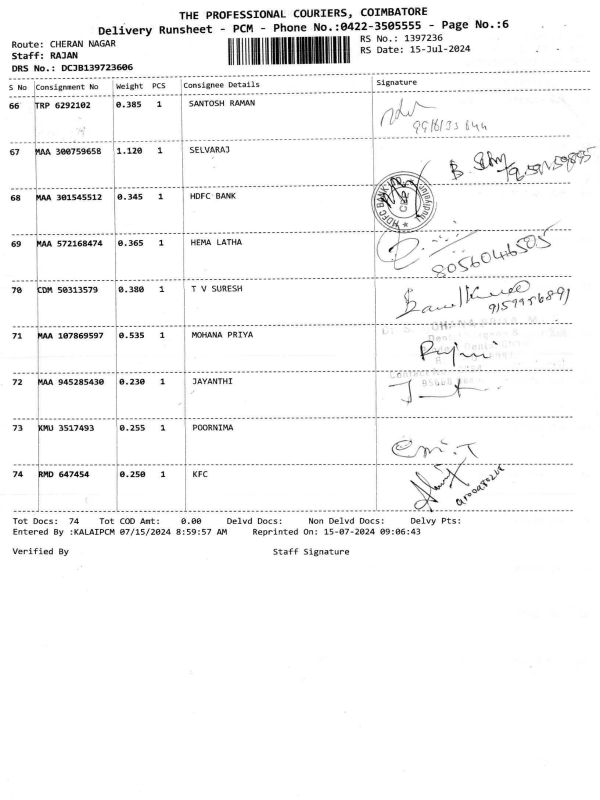 THE PROFESSIONAL COURIERS, COIMBATORE
Delivery Runsheet - PCM - Phone No.:0422-3505555 - Page No.:6
Route: CHERAN NAGAR
RS No.: 1397236
Staff: RAJAN
RS Date: 15-Jul-2024
DRS No.: DCJB139723606
S No Consignment No Weight PCS Consignee Details Signature
66 TRP 6292102 0.385 1 SANTOSH RAMAN
67 MAA 300759658 1.120 1 SELVARAJ
68 MAA 301545512 0.345 1 HDFC BANK
HDFC BANK
69 MAA 572168474 0.365 1 HEMA LATHA
8056046505
70 CDM 50313579 0.380 1 T V SURESH
9159956891
71 MAA 107869597 0.535 1 MOHANA PRIYA
72 MAA 945285430 0.230 1 JAYANTHI
73 KMU 3517493 0.255 1 POORNIMA
74 RMD 647454 0.250 1 KFC
Tot Docs: 74 Tot COD Amt: 0.00 Delvd Docs: Non Delvd Docs: Delvy Pts:
Entered By :KALAIPCM 07/15/2024 8:59:57 AM Reprinted On: 15-07-2024 09:06:43
Verified By Staff Signature